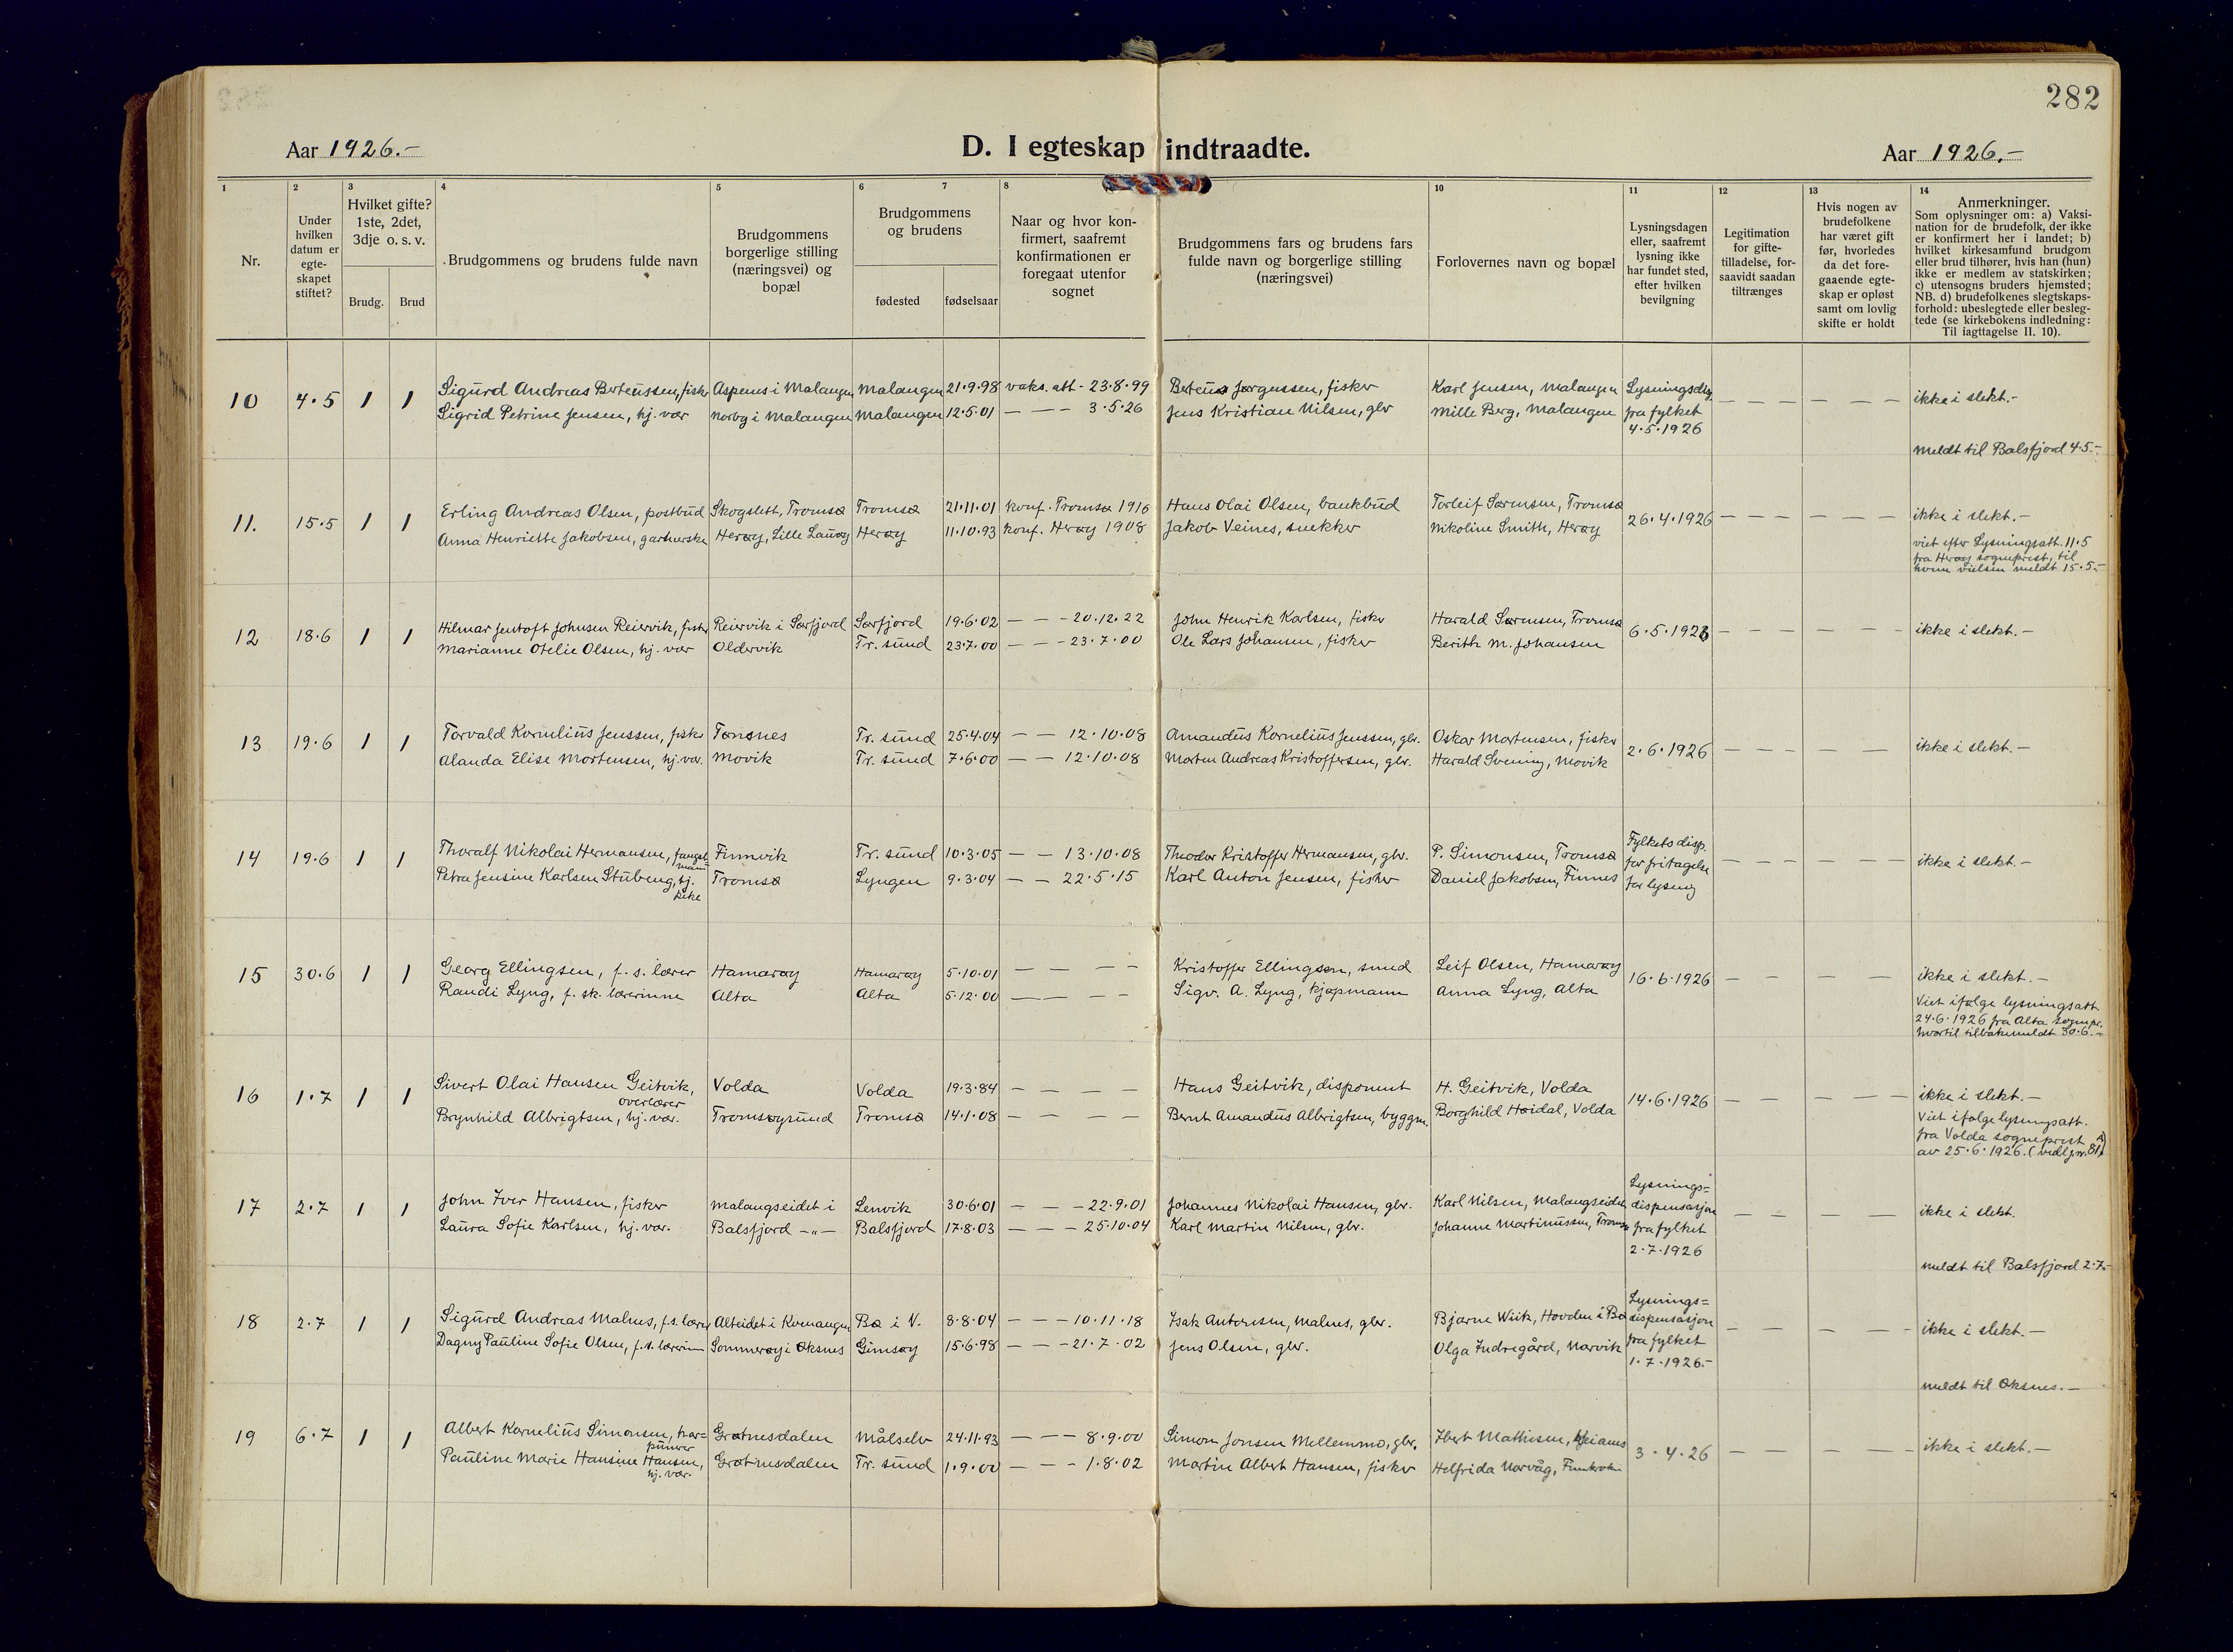 282
Aar 1926.-
D. I egteskap indtraadte.
Aar 1926.-
1 2 3 4 5 6 7 8 10 11 12 13 14
Nr.
Under hvilken datum er egte-skapet stiftet?
Hvilket gifte? 1ste, 2det, 3dje o. s. v.
Brudg. Brud
Brudgommens og brudens fulde navn
Brudgommens borgerlige stilling (næringsvei) og bopæl
Brudgommens og brudens
fødested fødselsaar
Naar og hvor kon-firmert, saafremt konfirmationen er foregaat utenfor sognet
Brudgommens fars og brudens fars fulde navn og borgerlige stilling (næringsvei)
Forlovernes navn og bopæl
Lysningsdagen eller, saafremt lysning ikke har fundet sted, efter hvilken bevilgning
Legitimation for gifte-tilladelse, for-saavidt saadan tiltrænges
Hvis nogen av brudefolkene har været gift før, hvorledes da det fore-gaaende egte-skap er opløst samt om lovlig skifte er holdt
Anmerkninger.
Som oplysninger om: a) Vaksi-
nation for de brudefolk, der ikke
er konfirmert her i landet; b)
hvilket kirkesamfund brudgom
eller brud tilhører, hvis han (hun)
ikke er medlem av statskirken;
c) utensogns bruders hjemsted;
NB. d) brudefolkenes slegtskaps-
forhold: ubeslegtede eller besleg-
tede (se kirkebokens indledning:
Til iagttagelse II. 10).
10 4.5 1 1 Sigurd Andreas Berteussen, fisker Aspenes i Malangen Malangen 21.9.98 vaks. att - 23.8.99 Berteus Jørgensen, fisker Karl Jensen, Malangen Lysningsdisp. - - - - - ikke i slekt.-
Sigrid Petrine Jensen, hj. vær Norbg i Malangen Malangen 12.5.01 - - - 3.5.26 Jens Kristian Nilsen, gbr Mille Berg, Malangen fra fylket
4.5.1926
meldt til Balsfjord 4.5.-
11. 15.5 1 1 Erling Andreas Olsen, postbud Skogslett, Tromsø Tromsø 21.11.01 konf. Tromsø 1916 Hans Olai Olsen, bankbud Torleif Sørensen, Tromsø 26.4.1926 - - - - - ikke i slekt.-
Anna Henriette Jakobsen, gartnerske Herøy, Lille Lauøy Herøy 11.10.93 konf. Herøy 1908 Jakob Veines, snekker Nikoline Smith, Herøy
viet efter Lysningsatt. 11.5
fra Herøy sogneprest, til
hvem vielsen meldt 15.5.-
12 18.6 1 1 Hilmar Jentoft Johnsen Reiervik, fisker Reiervik i Sørfjord Sørfjord 19.6.02 - - - 20.12.22 John Henrik Karlsen, fisker Harald Sørensen, Tromsø 6.5.1926 - - - - - ikke i slekt.-
Marianne Otelie Olsen, hj. vær Oldervik Tr. sund 23.7.00 - - - 23.7.00 Ole Lars Johansen, fisker Berith M. Johansen
13 19.6 1 1 Torvald Kornelius Jenssen, fisker Tønsnes Tr. sund 25.4.04 - - 12.10.08 Amandus Kornelius Jenssen, gbr. Oskar Mortensen, fisker 2.6.1926 - - - - - ikke i slekt.-
Alanda Elise Mortensen, hj. vær. Movik Tr. sund 7.6.00 - - 12.10.08 Morten Andreas Kristoffersen, gbr. Harald Svening, Movik
14 19.6 1 1 Thoralf Nikolai Hermansen, fangst=mann Finnvik Tr. sund 10.3.05 - - 13.10.08 Theodor Kristoffer Hermansen, gbr. P. Simonsen, Tromsø Fylkets disp. - - - - - ikke i slekt.-
Petra Jensine Karlsen Stubeng, hj. Tromsø Lyngen 9.3.04 - - 22.5.15 Karl Anton Jensen, fisker Daniel Jakobsen, Finnes for fritagelse
for lysning
15 30.6 1 1 Georg Ellingsen, f. s. lærer Hamarøy Hamarøy 5.10.01 - - - - Kristoffer Ellingsen, smed Leif Olsen, Hamarøy 16.6.1926 - - - - ikke i slekt.-
Randi Lyng, f. sk. lærerinne Alta Alta 5.12.00 - - - - Sigv. A. Lyng, kjøpmann Anna Lyng, Alta
Viet ifølge lysningsatt.
24.6.1926 fra Alta sognepr.
hvortil tilbakemeldt 30.6.-
16 1.7 1 1 Sivert Olai Hansen Geitvik, overlærer Volda Volda 19.3.84 - - - Hans Geitvik, disponent H. Geitvik, Volda 14.6.1926 - - - - - ikke i slekt.-
Brynhild Albrigtsen, hj. vær. Tromsøysund Tromsø 14.1.08 - - - Bernt Amandus Albrigtsen, byggm. Borghild Høidal, Volda
Viet ifølge lysningsatt.
fra Volda sogneprest
av 25.6.1926.
17 2.7 1 1 John Iver Hansen, fisker Malangseidet i Lenvik 30.6.01 - - - 22.9.01 Johannes Nikolai Hansen, gbr. Karl Nilsen, Malangseidet Lysnings=dispensasjon - - - - - ikke i slekt.
Laura Sofie Karlsen, hj. vær. Balsfjord -"- Balsfjord 17.8.03 - - - 25.10.04 Karl Martin Nilsen, gbr. Johanne Martinussen, Tromsø fra fylket
2.7.1926
meldt til Balsfjord 2.7.-
18 2.7 1 1 Sigurd Andreas Malnes, f.s. lærer Alteidet i Kvænangen Bø i V. 8.8.04 - - - 10.11.18 Isak Antonsen, Malnes, gbr. Bjarne Wiik, Hovden i Bø Lysnings=dispensasjon - - - - ikke i slekt.-
Dagny Pauline Sofie Olsen, f.s. lærerinne Sommerøy i Øksnes Gimsøy 15.6.98 - - - 21.7.02 Jens Olsen, gbr. Olga Indregård, Narvik fra fylket
1.7.1926.-
meldt til Øksnes.-
19 6.7 1 1 Albert Kornelius Simonsen, har=punerer Grøtnesdalen Målselv 24.11.93 - - - 8.9.00 Simon Jonsen Mellemmo, gbr. Ibert Mathisen, 3.4.26 - - - - - ikke i slekt.-
Pauline Marie Hansine Hansen, hj. vær. Grøtnesdalen Tr. sund 1.9.00 - - - 1.8.02 Martin Albert Hansen, fisker Helfrida Norvåg, Finnkroken